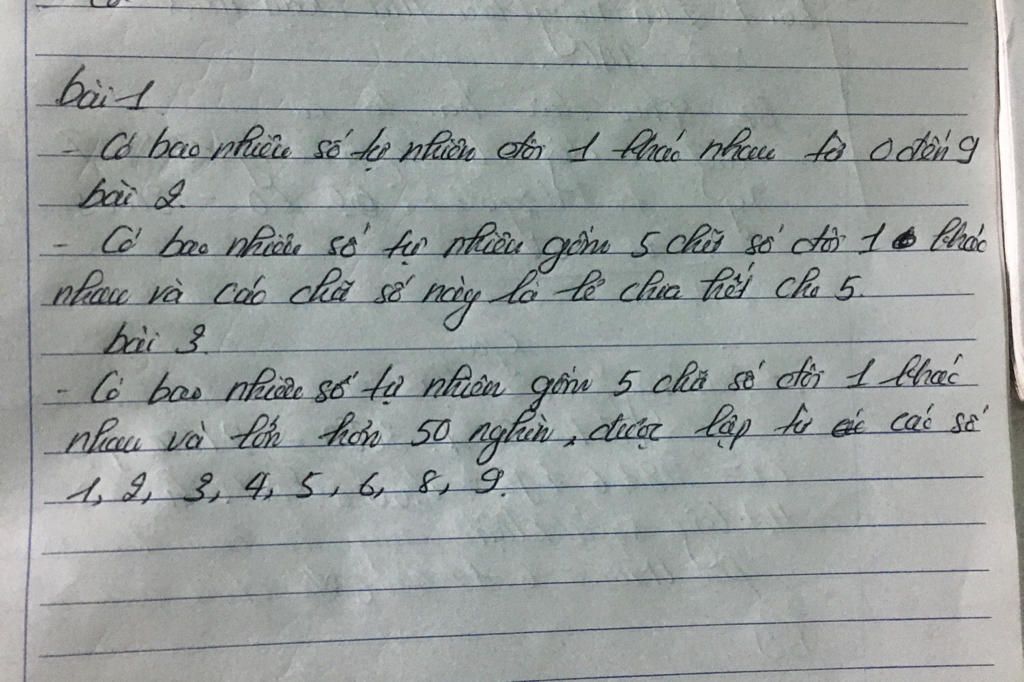 bài 1
- Có bao nhiêu số tự nhiên đôi 1 khác nhau từ 0 đến 9
bài 2.
- Có bao nhiêu số tự nhiên gồm 5 chữ số đôi 1 khác
nhau và các chữ số này là lẻ chia hết cho 5.
bài 3.
- Có bao nhiêu số tự nhiên gồm 5 chữ số đôi 1 khác
nhau và lớn hơn 50 nghìn, được lập từ các số
1, 2, 3, 4, 5, 6, 8, 9.